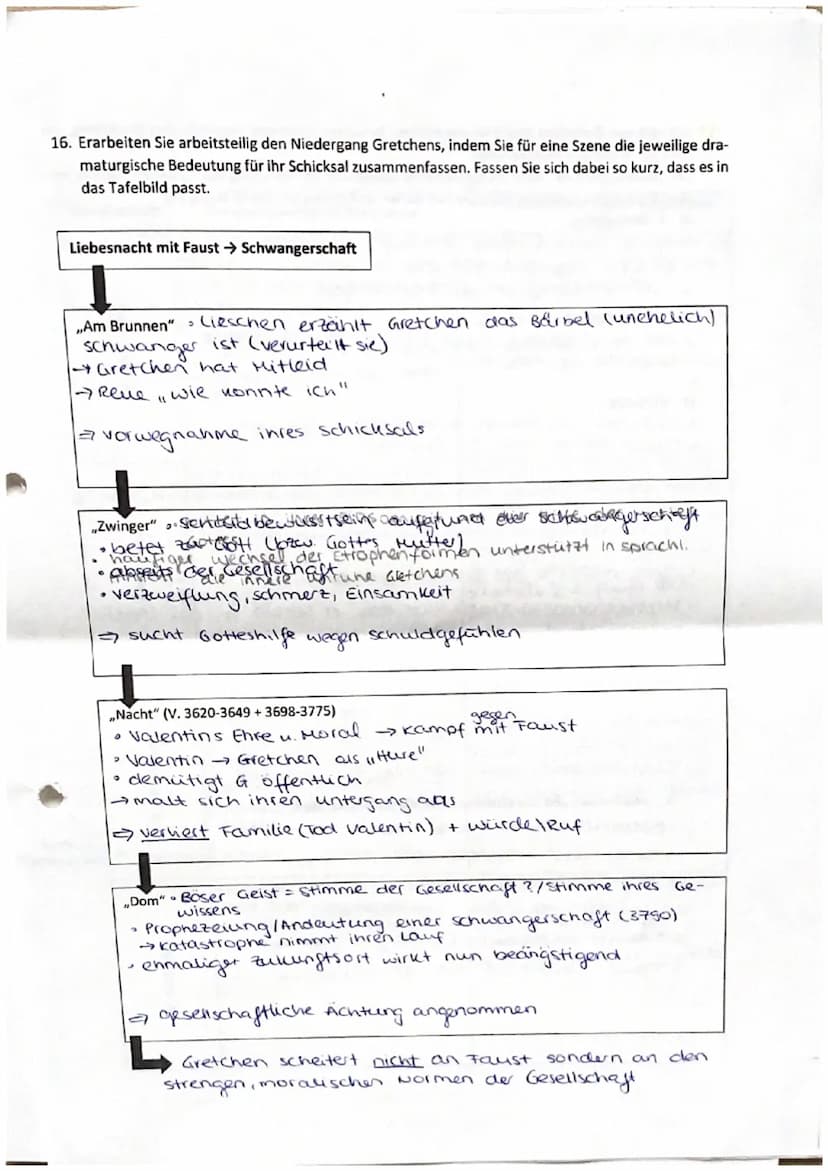 16. Erarbeiten Sie arbeitsteilig den Niedergang Gretchens, indem Sie für eine Szene die jeweilige dra-
maturgische Bedeutung für ihr Schicksal zusammenfassen. Fassen Sie sich dabei so kurz, dass es in
das Tafelbild passt.
Liebesnacht mit Faust → Schwangerschaft
„Am Brunnen“ • Lieschen erzählt Gretchen das Bärbel (unehelich)
schwanger ist (verurteilt sie)
→ Gretchen hat Mitleid
→ Reue „wie konnte ich"
⇒ vorwegnahme ihres Schicksals
„Zwinger“ • Schuldbewusstsein aufgrund der Schwangerschaft
• betet zu Gott (bzw. Gottes Mutter)
• häufiger wechsel der Strophenformen unterstützt in sprachl.
• abseits der Gesellschaft
die innere Gretchens
• Verzweiflung, schmerz, Einsamkeit
⇒ sucht Gotteshilfe wegen schuldgefühlen
„Nacht“ (V. 3620-3649 + 3698-3775)
• Valentins Ehre u. Moral → Kampf mit gegen Faust
• Valentin → Gretchen als „Hure"
• demütigt G öffentlich
→ malt sich ihren untergang aus
⇒ verliert Familie (Tod Valentin) + würde\Ruf
„Dom“ • Böser Geist = Stimme der Gesellschaft ? / Stimme ihres Ge-
wissens
• Prophezeiung / Andeutung einer schwangerschaft (3790)
→ Katastrophe nimmt ihren Lauf
• enmaliger Zukunftsort wirkt nun beängstigend
⇒ gesellschaftliche Ächtung angenommen
Gretchen scheitert nicht an Faust sondern an den
strengen, moralischen Normen der Gesellschaft